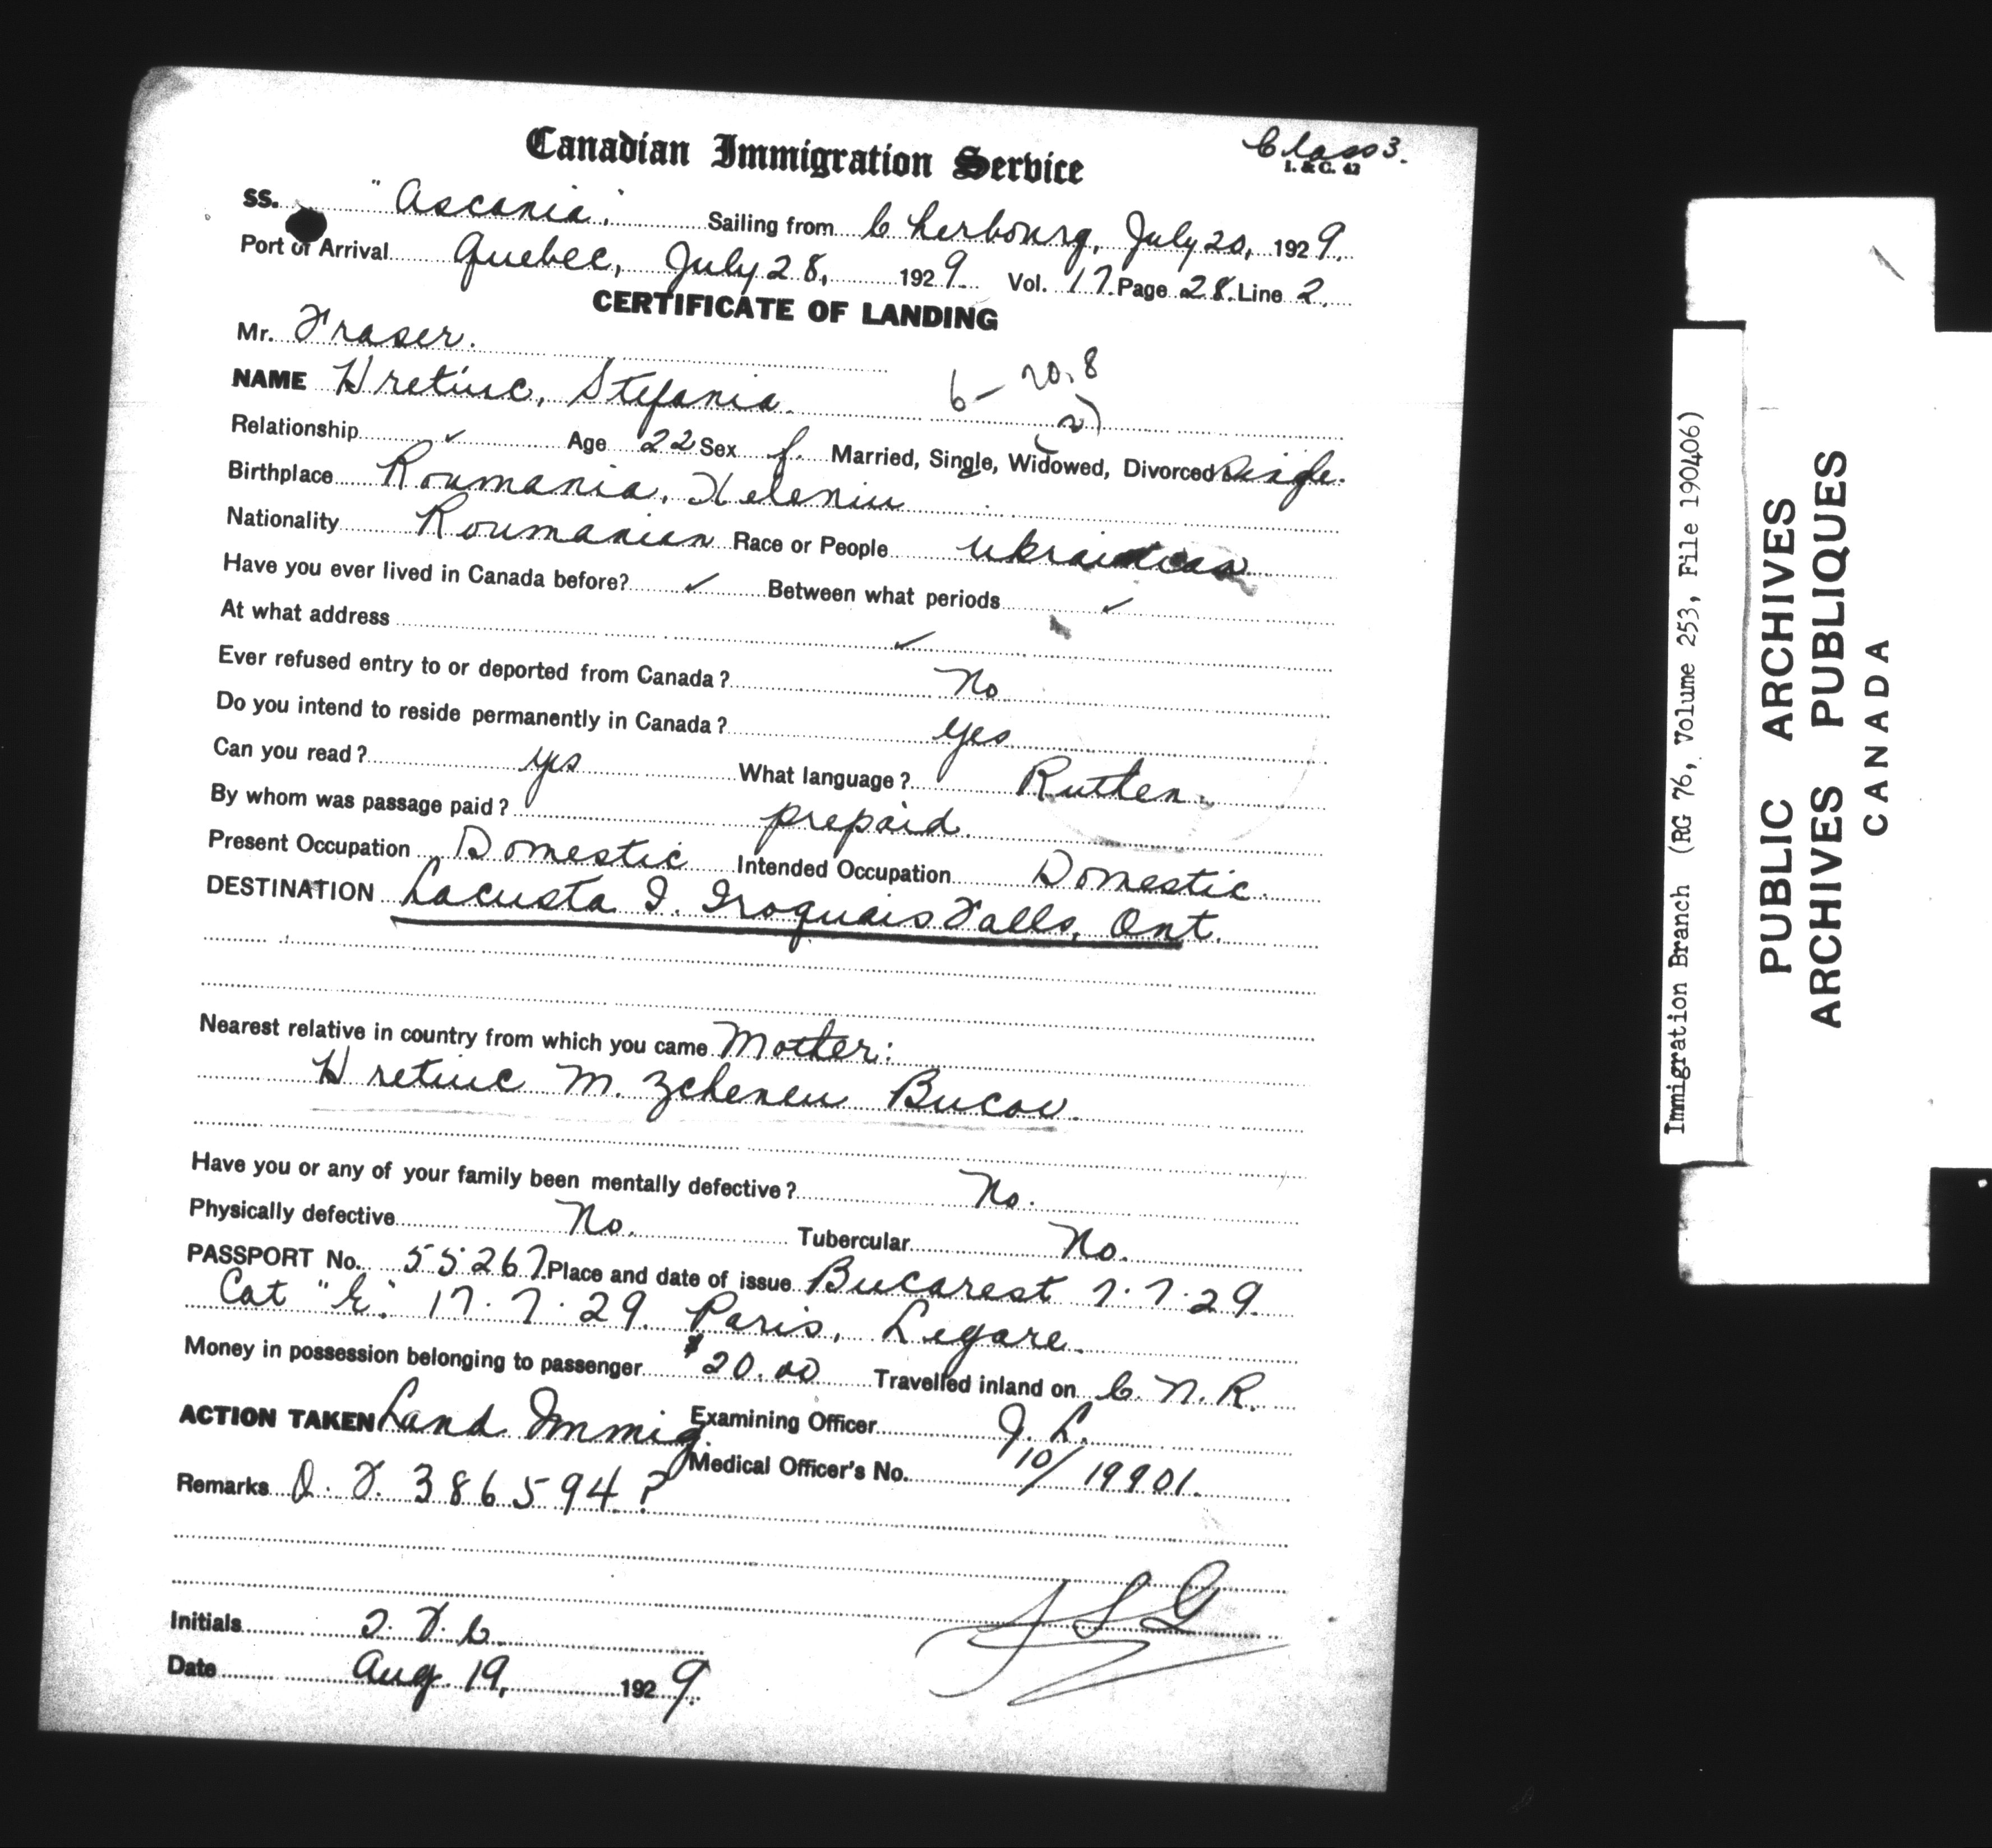 Class 3.
Canadian Immigration Service
I. & C. 42
SS. "Ascania," Sailing from Cherbourg, July 20, 1929.
Port of Arrival Quebec, July 28, 1929 Vol. 17 Page 28 Line 2.
CERTIFICATE OF LANDING
Mr. Fraser.
NAME Hretiuc, Stefania.
Relationship ✓ Age 22 Sex f. Married, Single, Widowed, Divorced Single.
Birthplace Roumania,
Nationality Roumanian Race or People Ukrainian
Have you ever lived in Canada before? ✓ Between what periods ✓
At what address ✓
Ever refused entry to or deported from Canada? No
Do you intend to reside permanently in Canada? yes
Can you read? yes What language? Ruthen.
By whom was passage paid? prepaid.
Present Occupation Domestic Intended Occupation Domestic.
DESTINATION Lacusta I. Iroquois Falls, Ont.
Nearest relative in country from which you came Mother:
Hretiuc M. Zcheneu Bucov.
Have you or any of your family been mentally defective? No.
Physically defective No. Tubercular No.
PASSPORT No. 55267 Place and date of issue Bucarest 7.7.29.
Cat 17.7.29. Paris, Legare.
Money in possession belonging to passenger $20.00 Travelled inland on C.N.R.
ACTION TAKEN Land Immig. Examining Officer J.L.
Medical Officer's No. 10/19901.
Remarks O.F. 386594 P
JSG
Initials
Date Aug. 19, 1929.
Immigration Branch (RG 76, Volume 253, File 190406)
PUBLIC ARCHIVES
ARCHIVES PUBLIQUES
CANADA